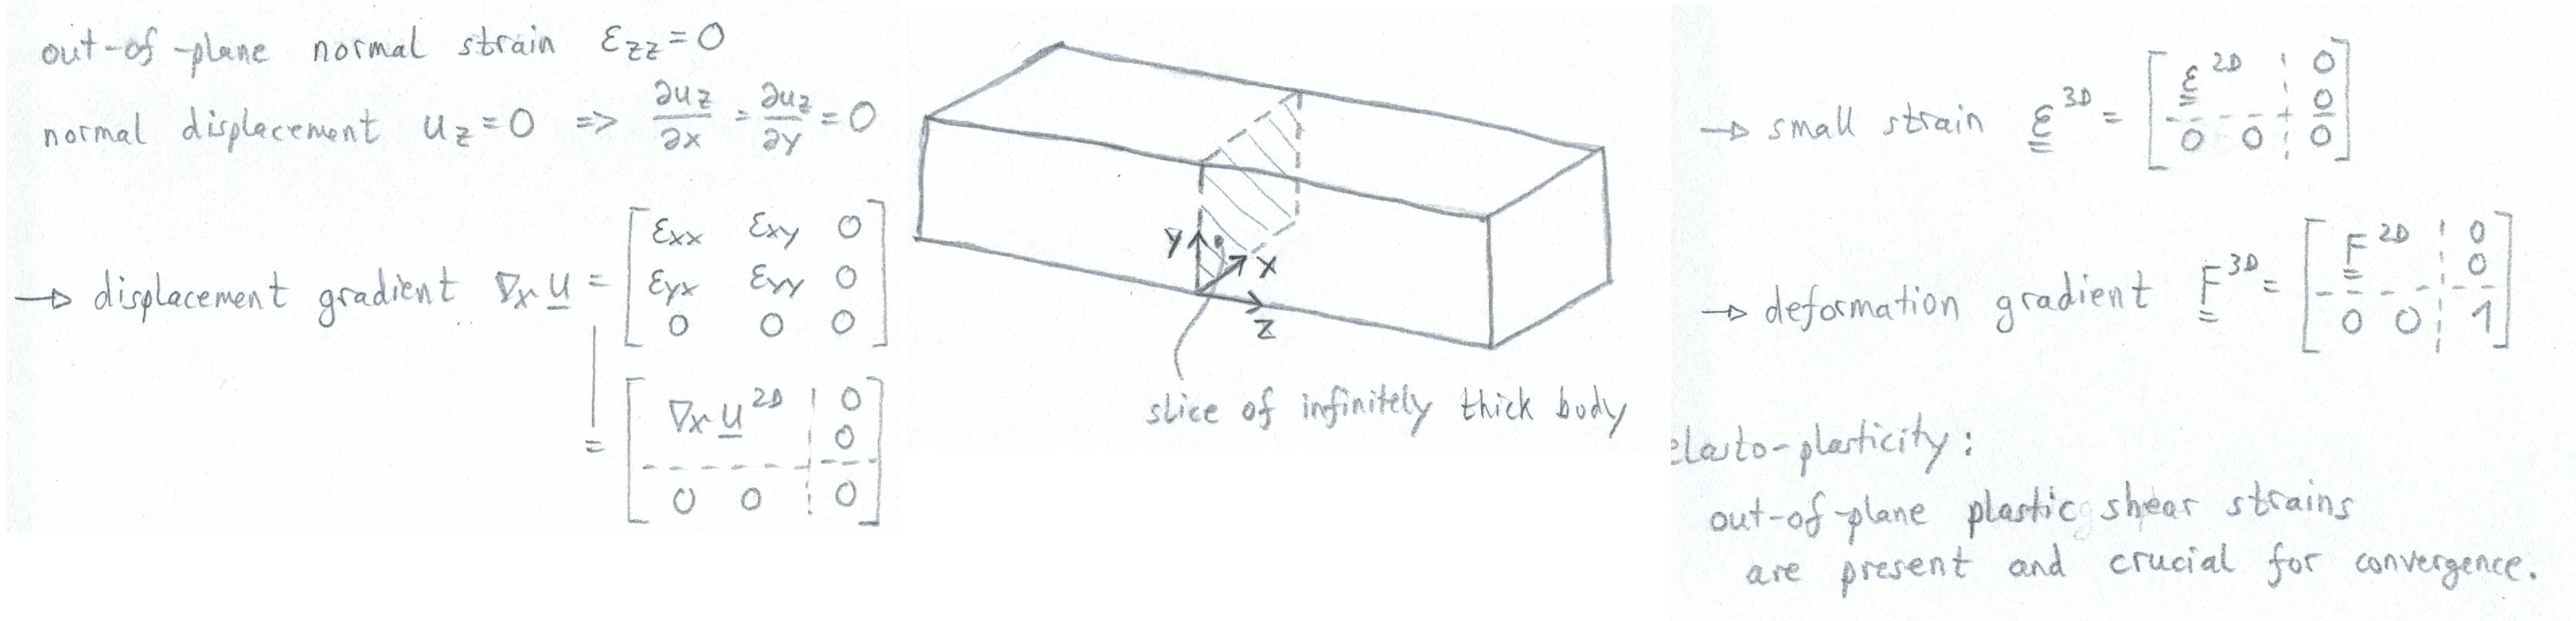 out-of-plane normal strain ε_zz = 0
normal displacement u_z = 0 => ∂u_z/∂x = ∂u_z/∂y = 0
→ displacement gradient ∇_X u =
[ε_xx ε_xy 0
ε_yx ε_yy 0
0 0 0]
= [∇_X u^2D ¦ 0
0
0 0 ¦ 0]
y
x
z
slice of infinitely thick body
→ small strain ε^3D = [ε^2D ¦ 0
0
0 0 ¦ 0]
→ deformation gradient F^3D = [F^2D ¦ 0
0
0 0 ¦ 1]
elasto-plasticity:
out-of-plane plastic shear strains
are present and crucial for convergence.